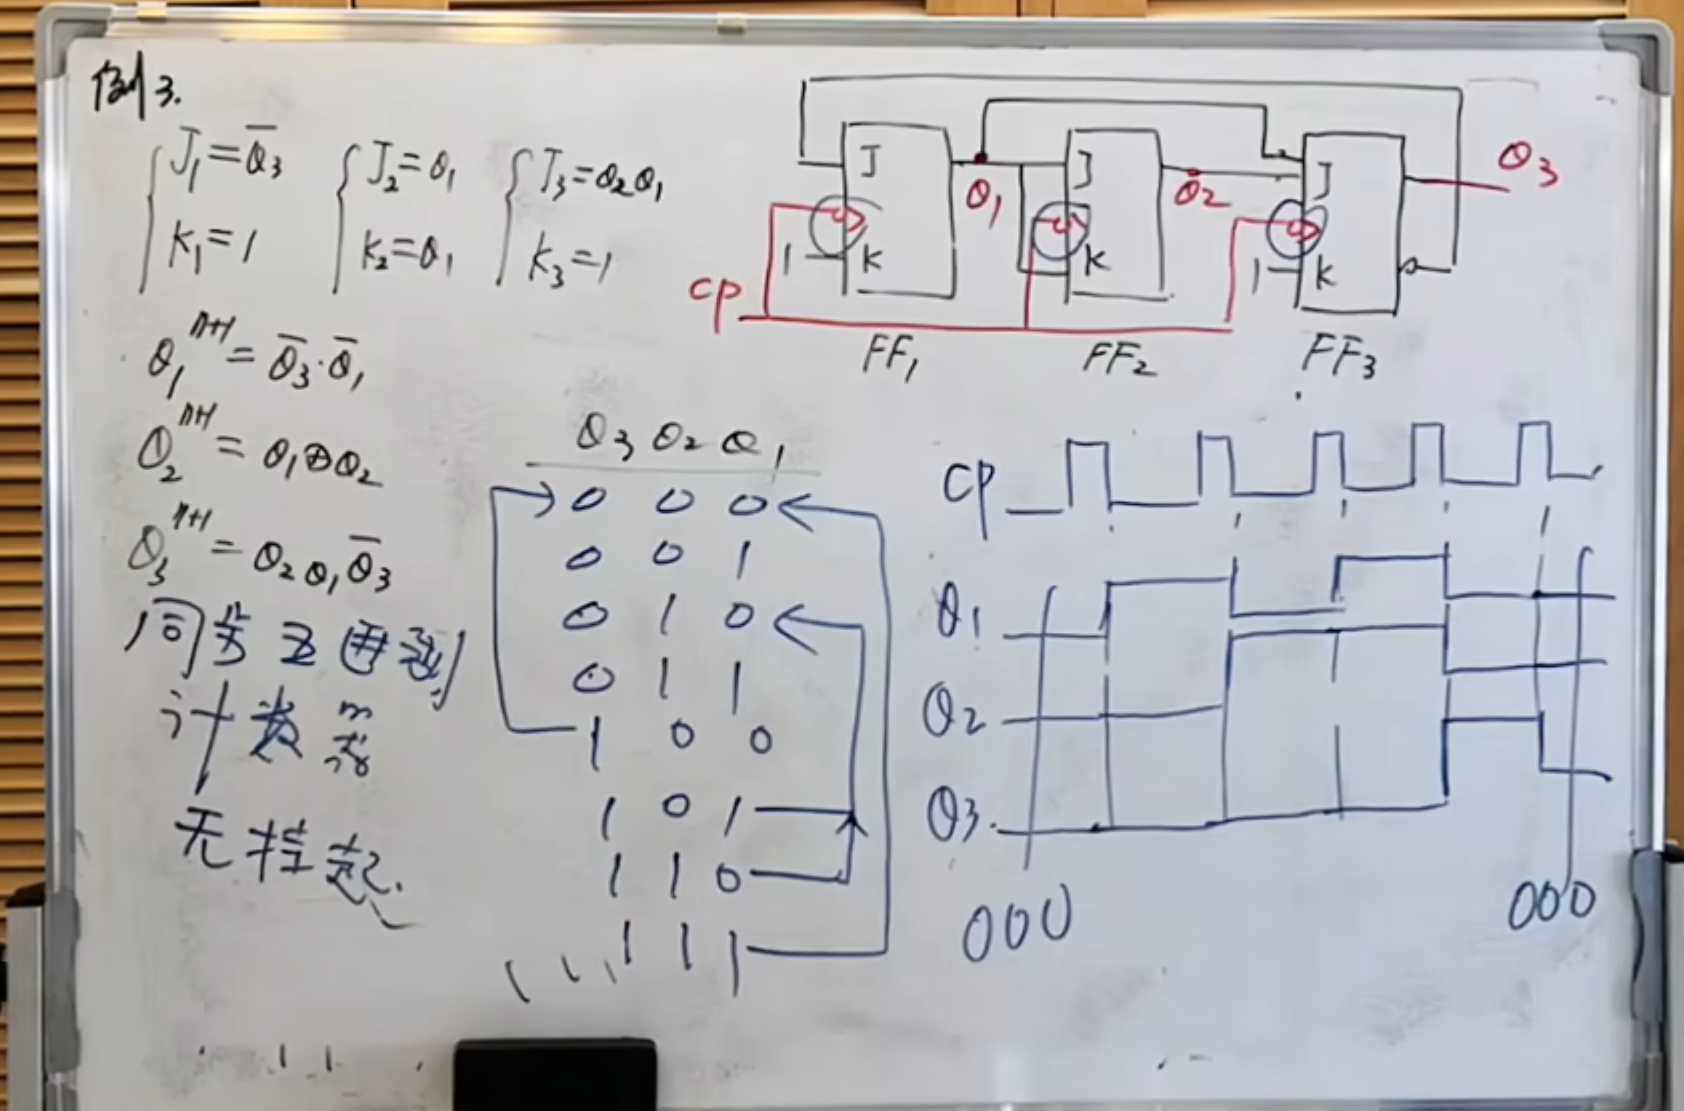 例3.
J₁=Q̅₃ J₂=Q₁ J₃=Q₂Q₁
K₁=1 K₂=Q₁ K₃=1
Q₁ⁿ⁺¹=Q̅₃·Q̅₁
Q₂ⁿ⁺¹=Q₁⊕Q₂
Q₃ⁿ⁺¹=Q₂Q₁Q̅₃
同步五进制
计数器
无挂起.
J J J
Q₁ Q₂ Q₃
1 K K 1 K
CP
FF₁ FF₂ FF₃
Q₃ Q₂ Q₁
0 0 0
0 0 1
0 1 0
0 1 1
1 0 0
1 0 1
1 1 0
1 1 1
CP
Q₁
Q₂
Q₃
000 000